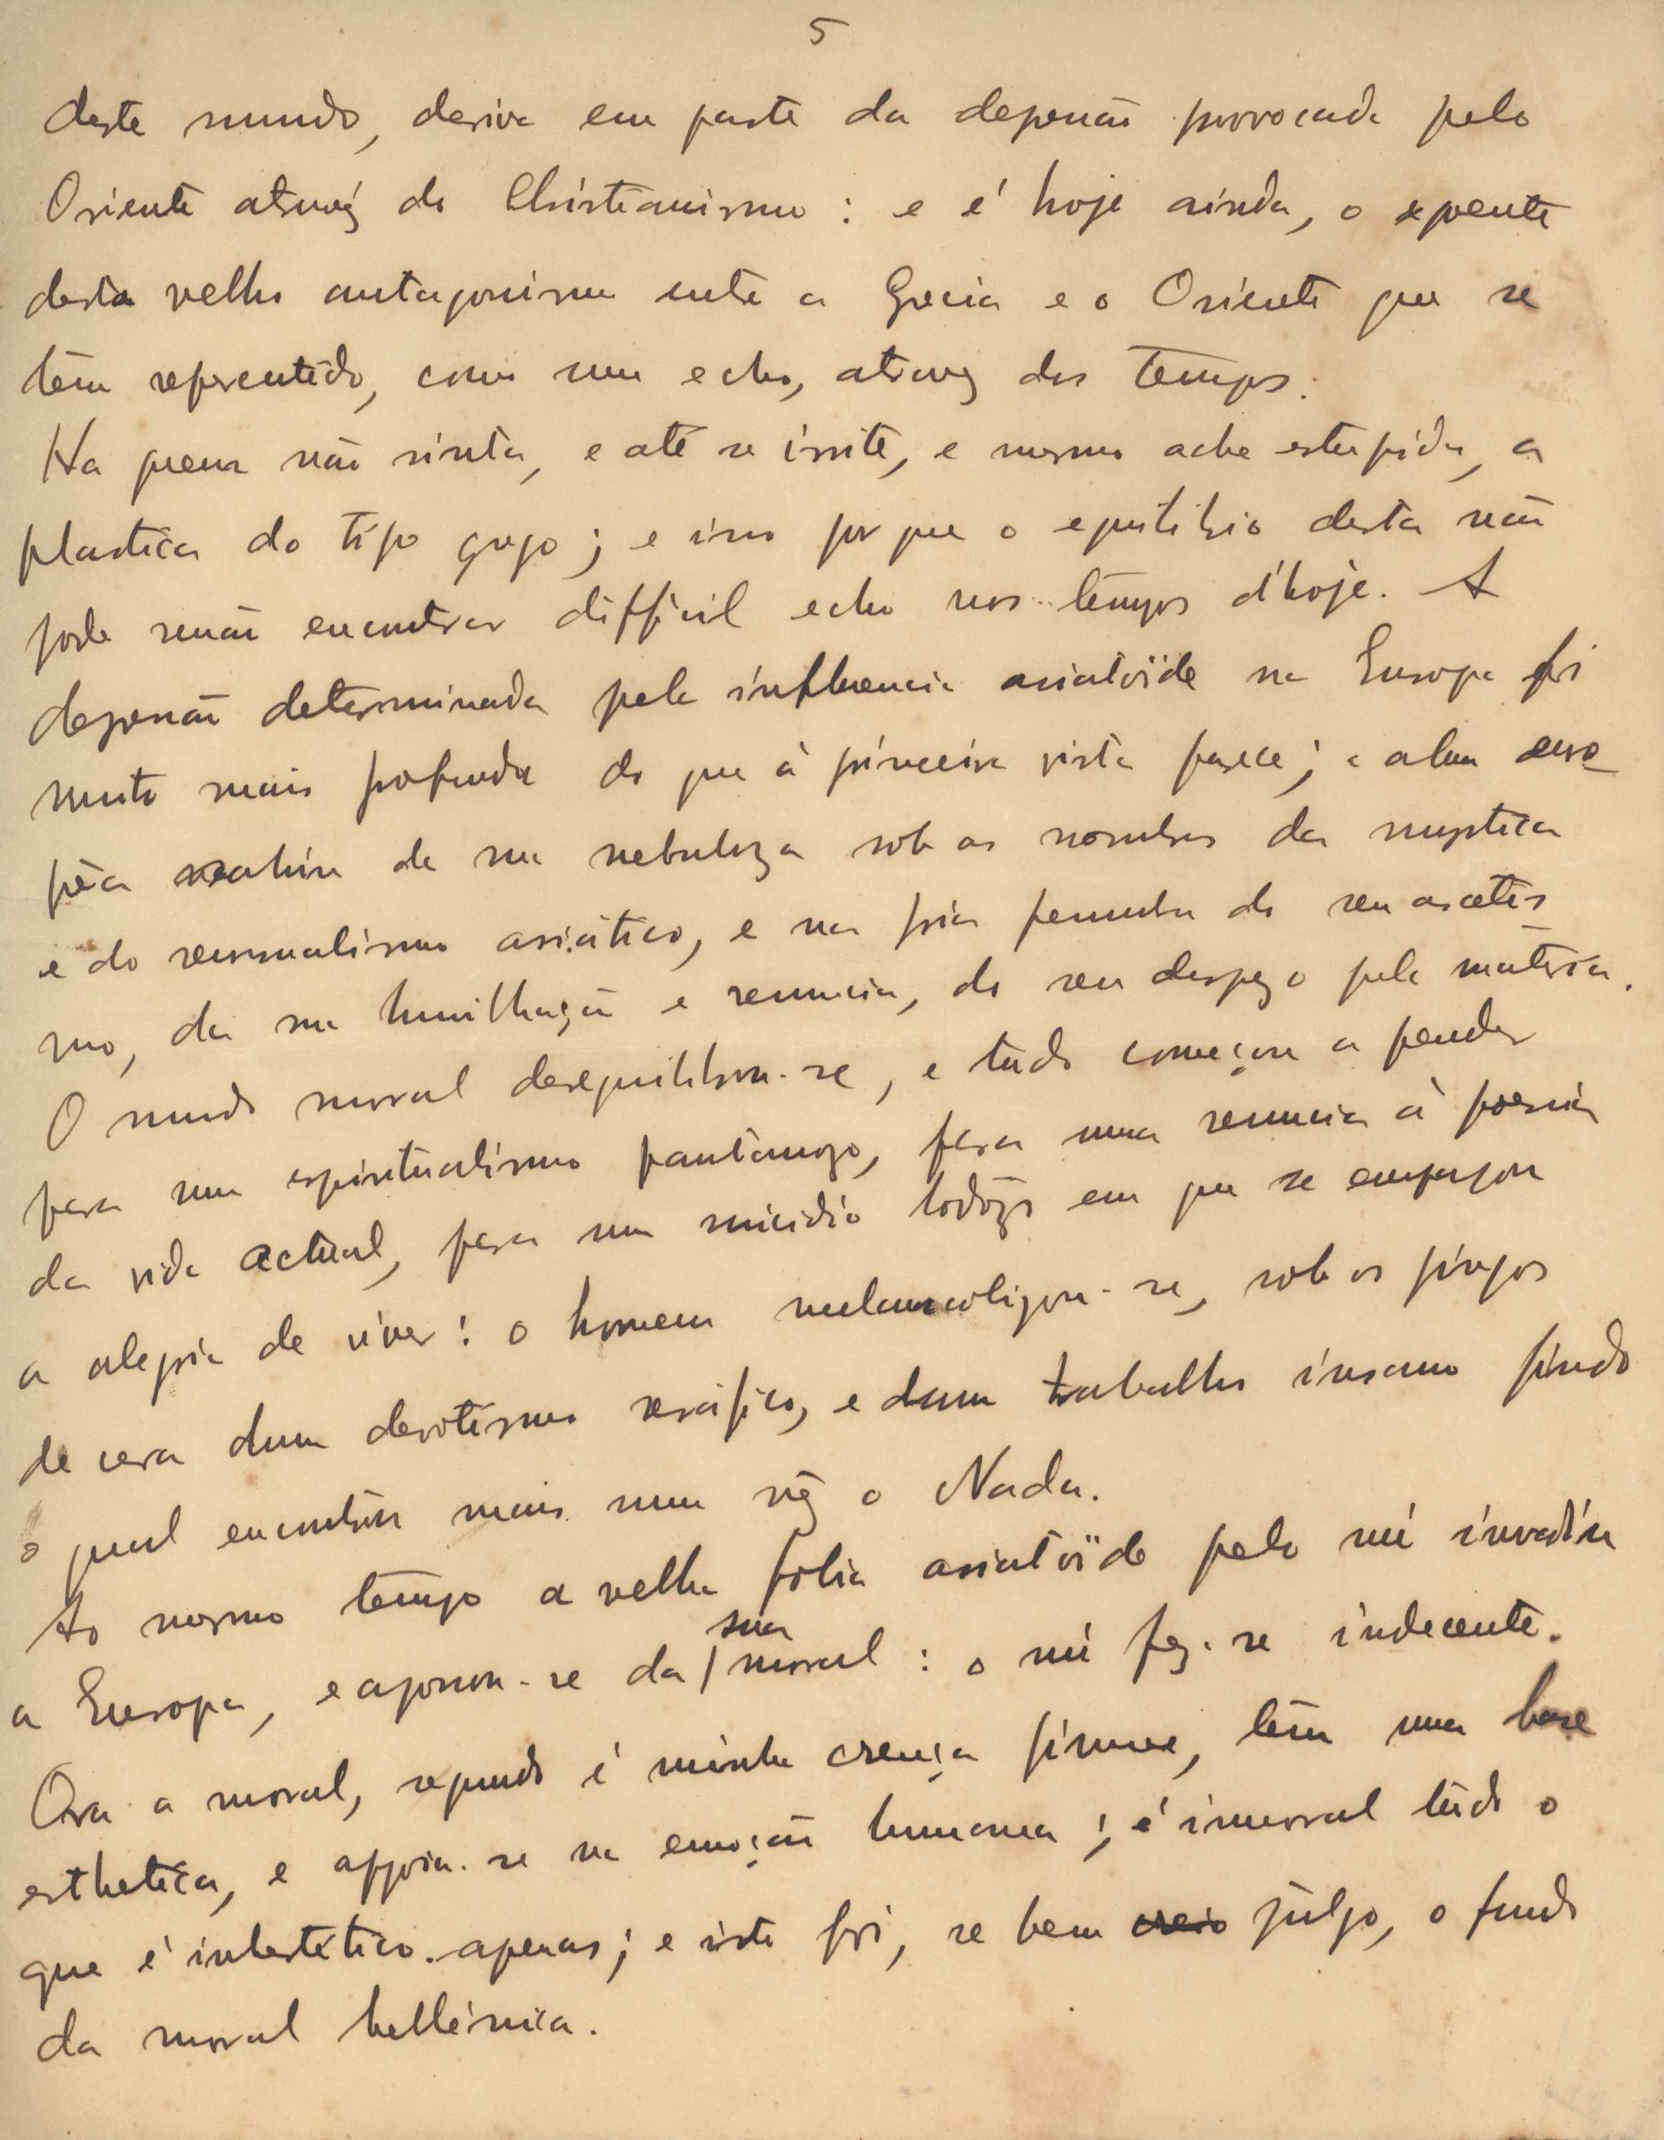 5
deste mundo, deriva em parte da depressão provocada pelo
Oriente atravez do Christianismo : e é hoje ainda, o expoente
desta velho antagonismo entre a Grecia e o Oriente que se
tem repercutido, como um echo, atravez dos tempos.
Ha quem não sinta, e até se irrite, e mesmo ache estupida, a
plastica do tipo grego ; e isso por que o equilibrio desta não
pode senão encontrar difficil echo nos tempos d'hoje. A
depressão determinada pela influencia asiatoïde na Europa foi
muito mais profunda do que á primeira vista parece ; a alma euro-
pêa de sua nebuloza sob as sombras da mystica
e do sensualismo asiático, e na fria penumbra do seu ascetis
mo, da sua humilhação e renuncia, do seu despego pela matéria.
O mundo moral desequilibrou-se, e tudo começou a pender
para um espiritualismo pantanozo, para uma renuncia á poesia
da vida actual, para um suicidio lodôzo em que se
a alegria de viver : o homem melancolizou-se, sob os pingos
de cera dum devotismo seráfico, e dum trabalho insano findo
o qual encontrou mais uma vez o Nada.
Ao mesmo tempo a velha fobia asiatoïde pelo nú invadiu
a Europa, e apossou-se da sua moral : o nú fez-se indecente.
Ora a moral, segundo é minha crença firme, têm uma base
esthetica, e appoia-se na emoção humana ; é immoral tudo o
que é inestético apenas ; e isto foi, se bem creio julgo, o fundo
da moral hellénica.